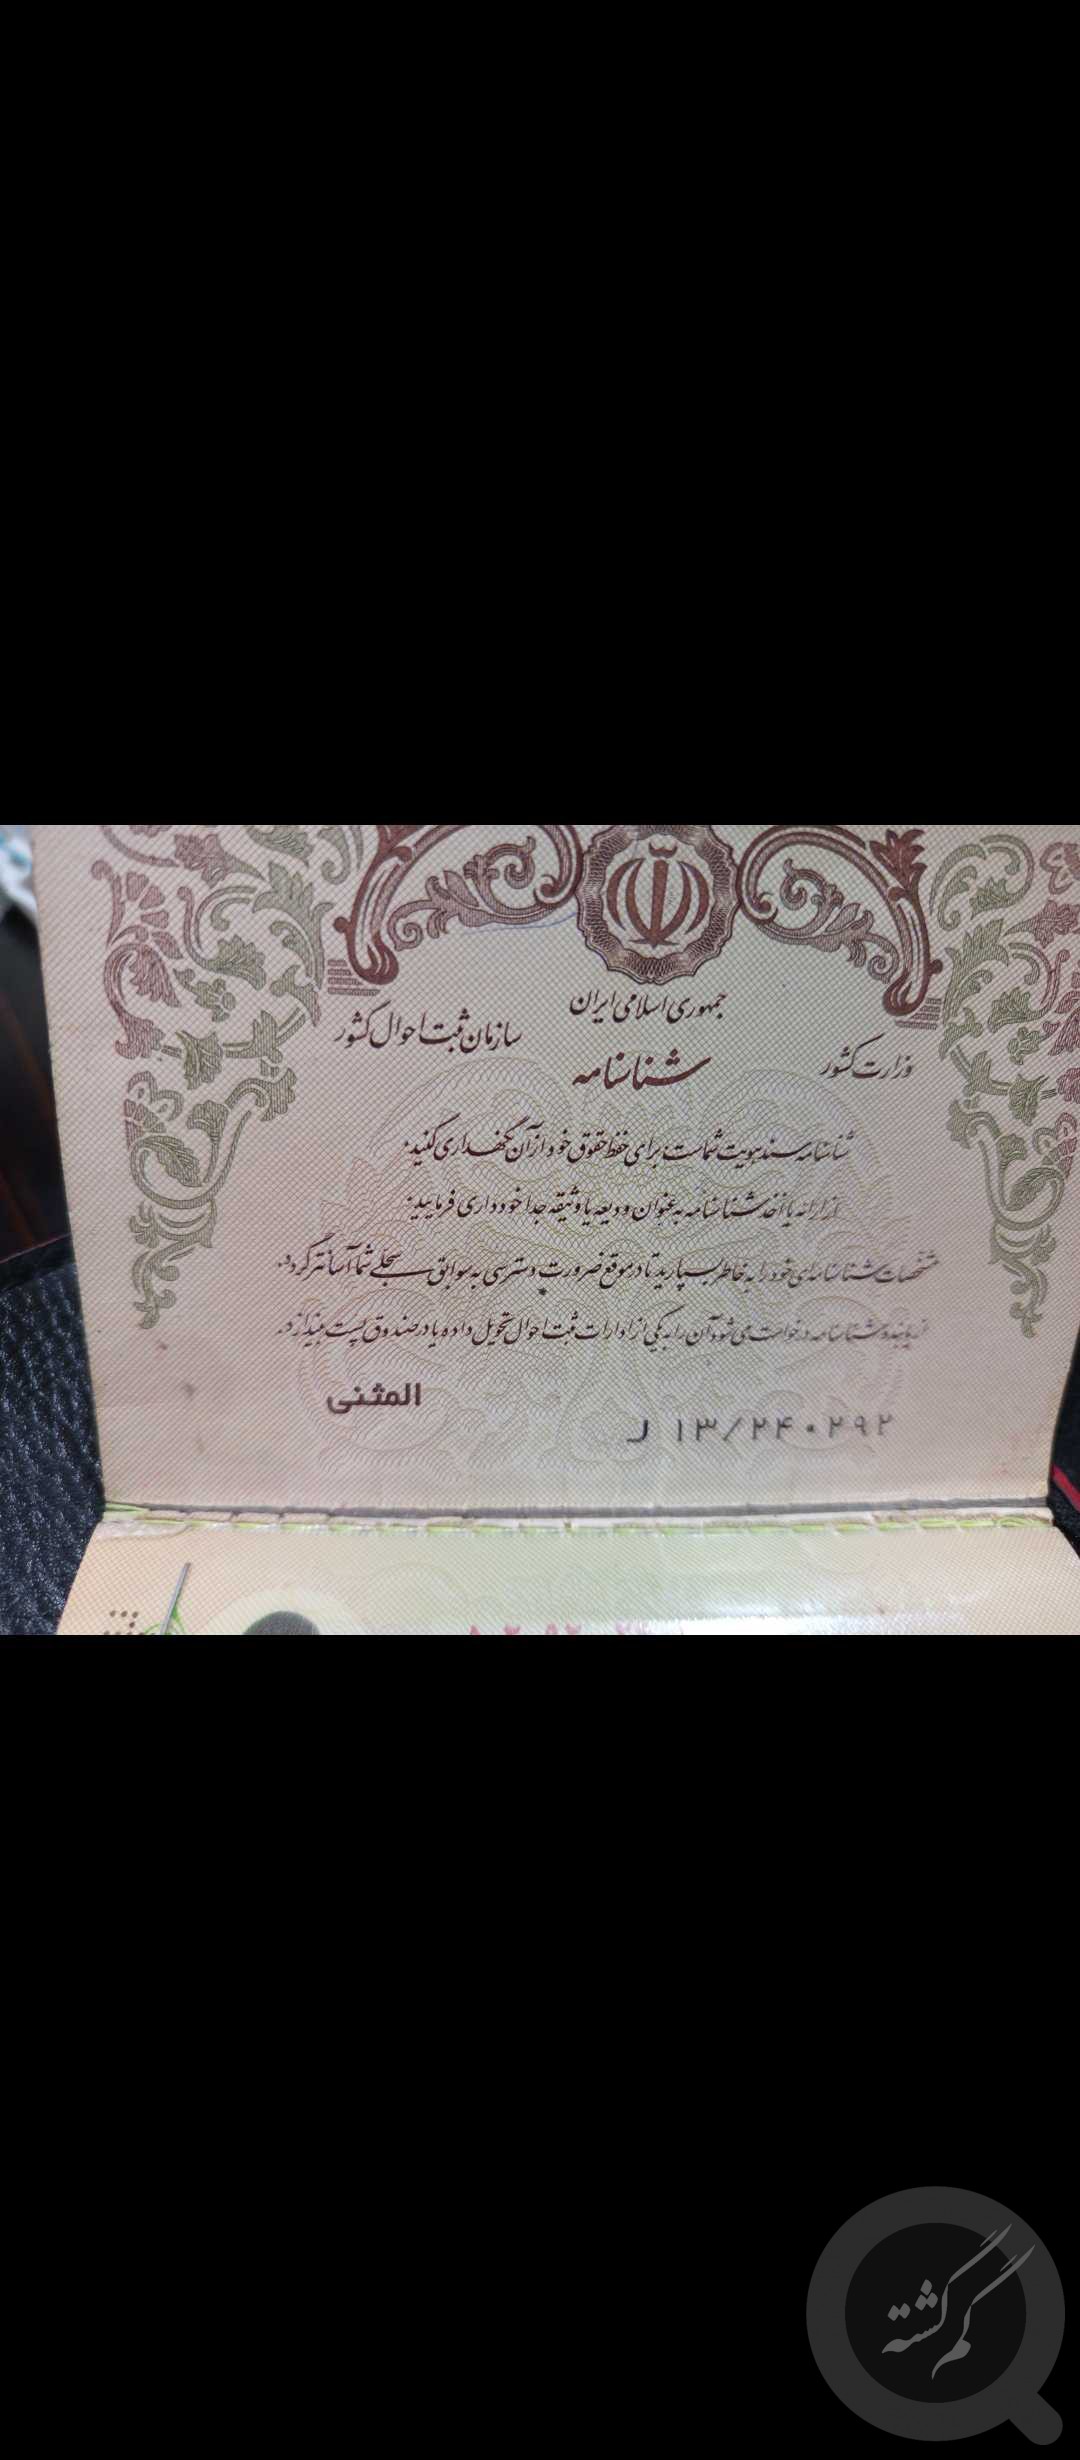 جمهوری اسلامی ایران
وزارت کشور
سازمان ثبت احوال کشور
شناسنامه
شناسنامه سند هویت شماست برای حفظ حقوق خود از آن نگهداری کنید.
از ارائه یا اخذ شناسنامه به عنوان ودیعه یا وثیقه جداً خودداری فرمایید.
مشخصات شناسنامه‌ای خود را به خاطر بسپارید تا در موقع ضرورت دسترسی به سوابق سجلی شما آسانتر گردد.
از یابنده شناسنامه درخواست می شود آن را به یکی از ادارات ثبت احوال تحویل داده یا در صندوق پست بیندازد.
المثنی
ل ۱۳/۲۴۰۲۹۲
گمگشته